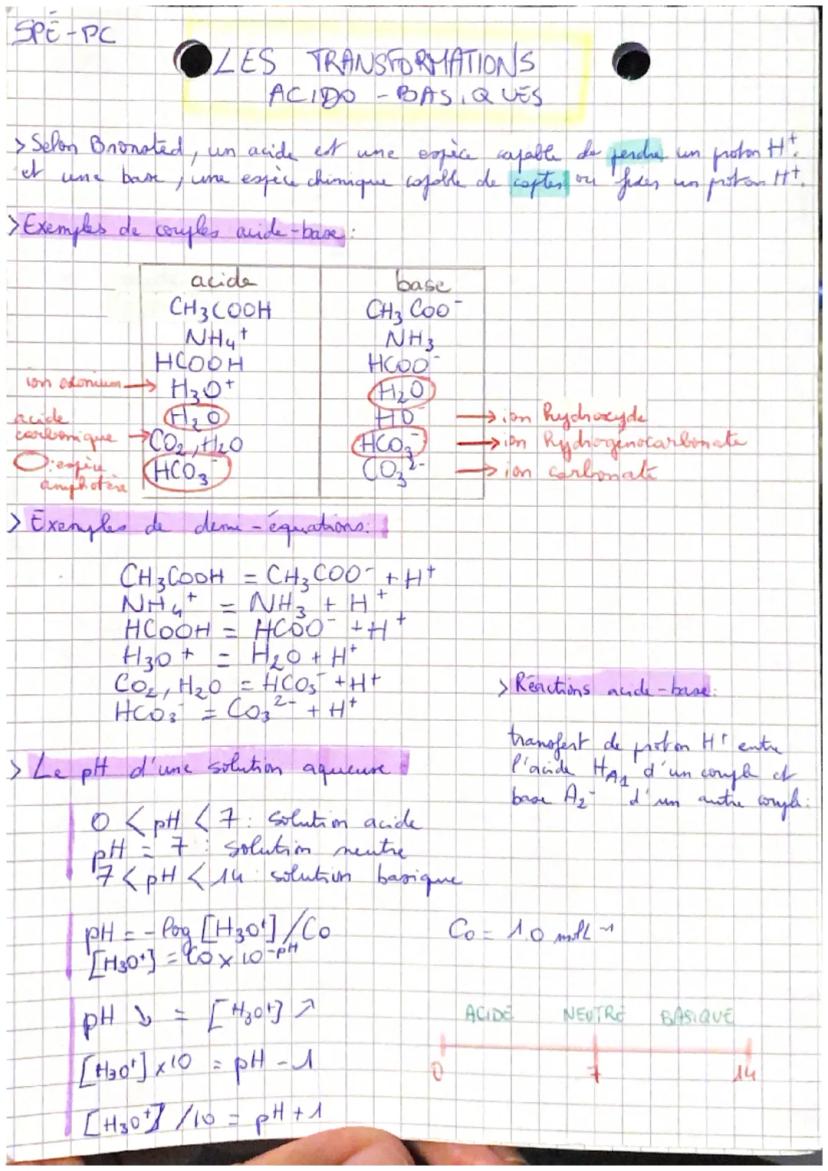 SPÉ-PC
LES TRANSFORMATIONS
ACIDO-BASIQUES
> Selon Bronsted, un acide et une espèce capable de perdre un proton H⁺.
et une base, une espèce chimique capable de capter ou fixer un proton H⁺.
> Exemples de couples acide-base:
acide base
CH₃COOH CH₃COO⁻
NH₄⁺ NH₃
HCOOH HCOO⁻
ion oxonium → H₃O⁺ H₂O
H₂O HO⁻ → ion hydroxyde
acide carbonique → CO₂,H₂O HCO₃⁻ → ion hydrogénocarbonate
O: espèce amphotère HCO₃⁻ CO₃²⁻ → ion carbonate
> Exemples de demi-équations:
CH₃COOH = CH₃COO⁻ + H⁺
NH₄⁺ = NH₃ + H⁺
HCOOH = HCOO⁻ + H⁺
H₃O⁺ = H₂O + H⁺
CO₂, H₂O = HCO₃⁻ + H⁺
HCO₃⁻ = CO₃²⁻ + H⁺
> Réactions acide-base:
transfert de proton H⁺ entre
l'acide HA₁ d'un couple et
base A₂⁻ d'un autre couple.
> Le pH d'une solution aqueuse
0 < pH < 7 : solution acide
pH = 7 : solution neutre
7 < pH < 14 : solution basique
pH = -log [H₃O⁺]/Co Co = 1.0 mol.L⁻¹
[H₃O⁺] = Co × 10⁻ᵖᴴ
pH ↘ = [H₃O⁺] ↗
[H₃O⁺] ×10 = pH - 1
[H₃O⁺] /10 = pH + 1
ACIDE NEUTRE BASIQUE
0 7 14